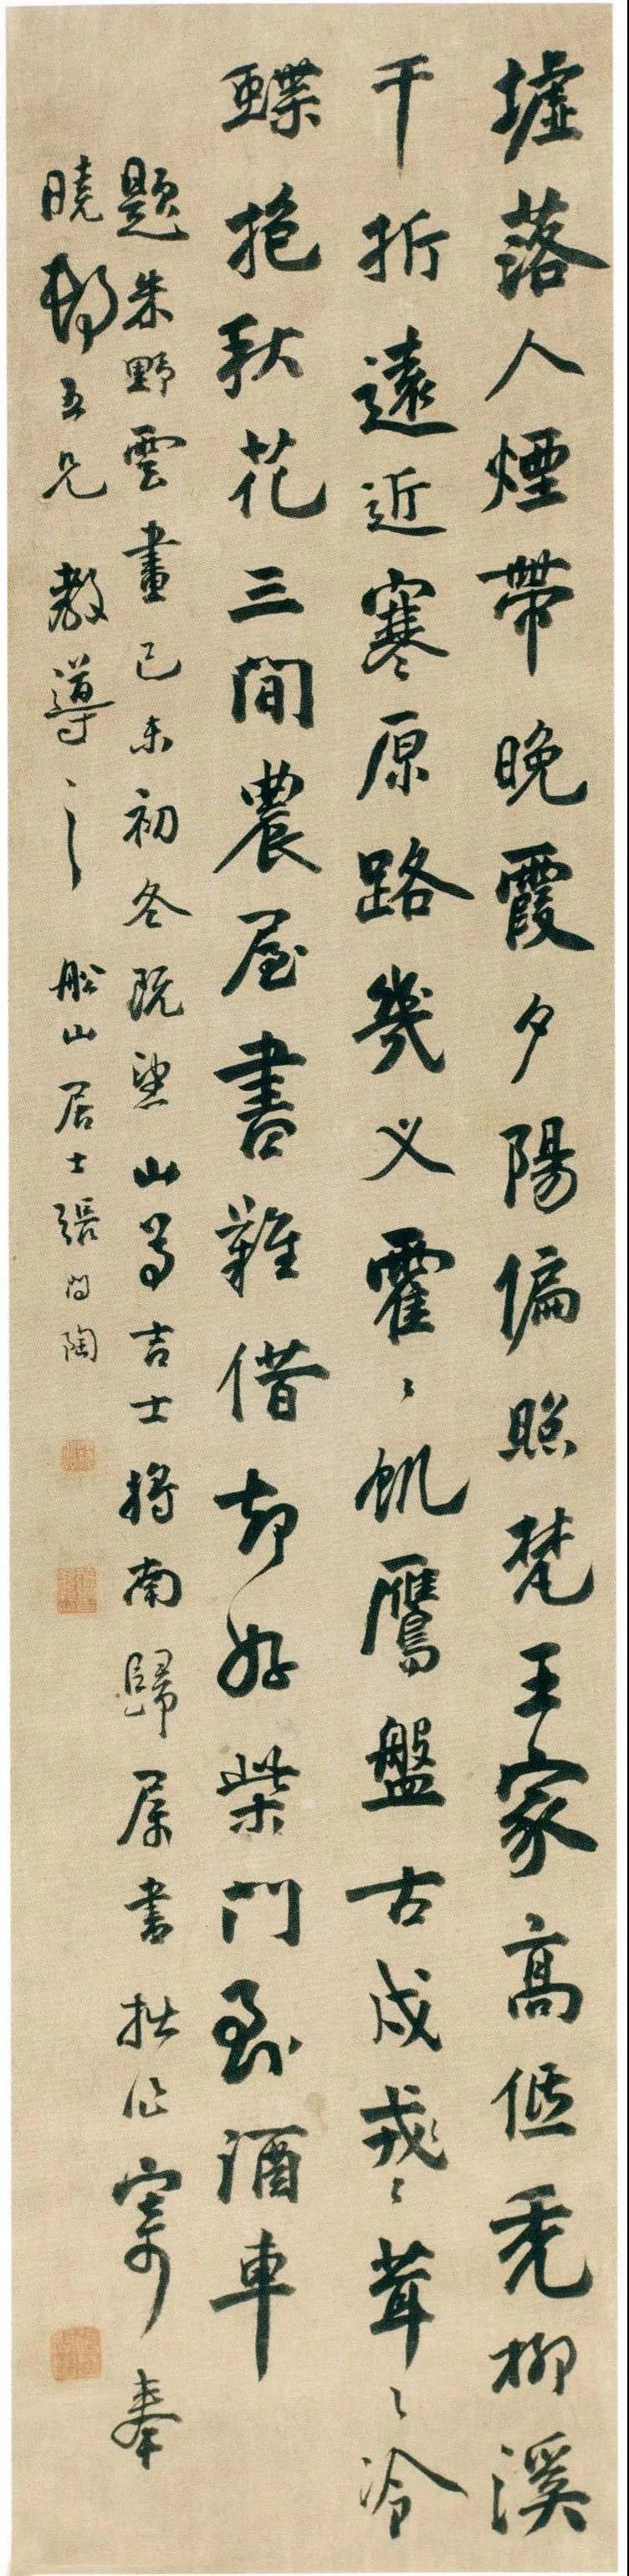 墟落人煙帶晚霞夕陽偏照梵王家高低禿柳溪
千折遠近寒原路幾叉霍〻飢鷹盤古戍戎〻茸〻冷
蝶抱秋花三間農屋書難借却好柴門到酒車
題朱野雲畫己未初冬既望山尊吉士將南歸屬書拙作寄奉
曉 五兄 教導之 船山居士張問陶